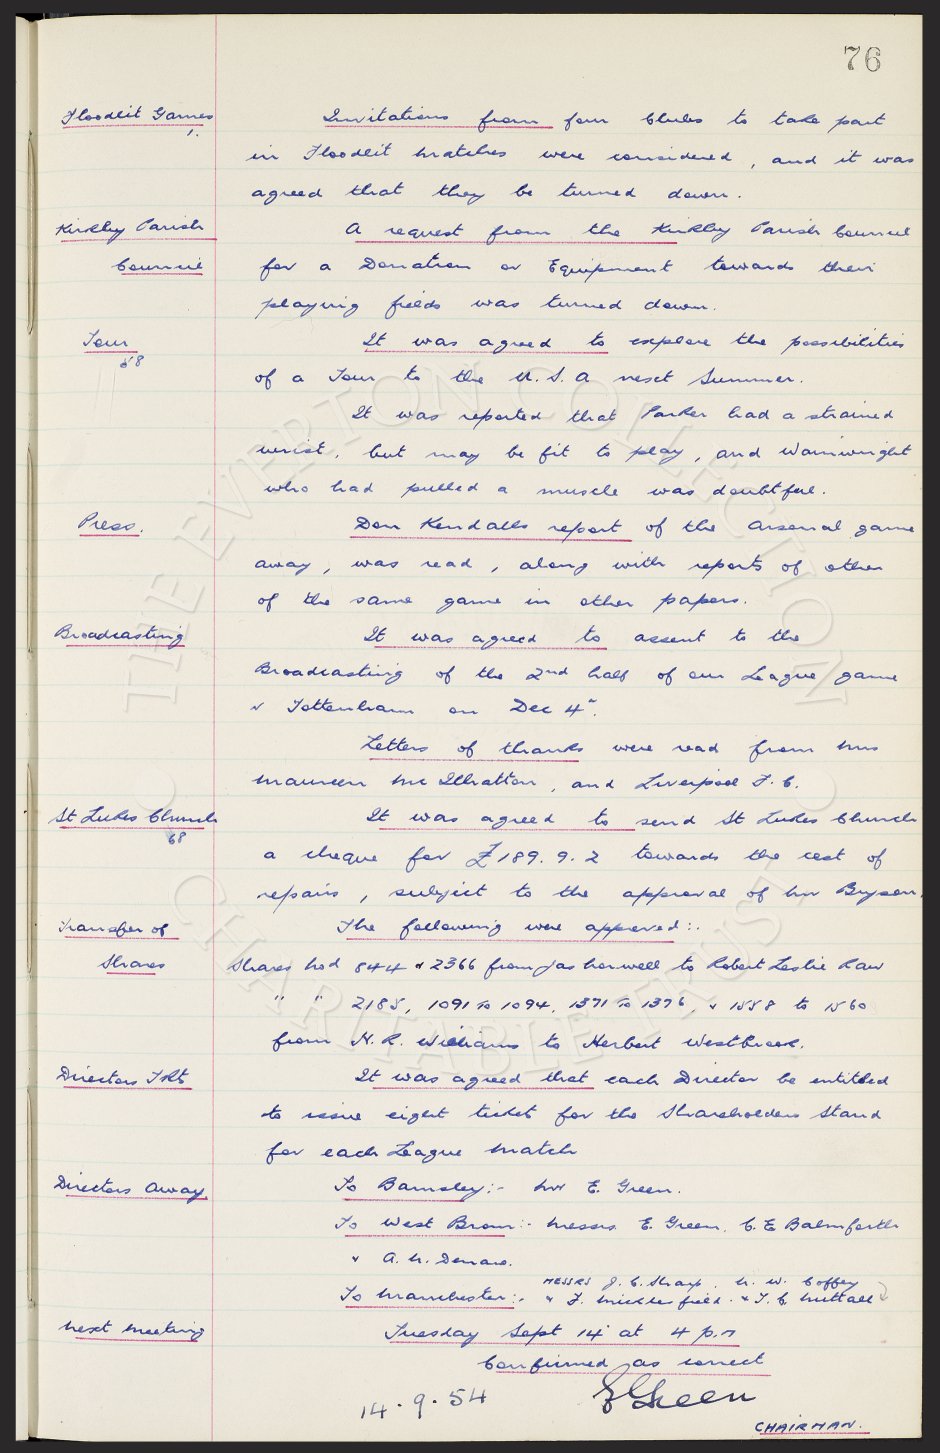 76
Floodlit Games
1.
Invitations from four Clubs to take part
in Floodlit Matches were considered, and it was
agreed that they be turned down.
Kirkby Parish
Council
A request from the Kirkby Parish Council
for a Donation or Equipment towards their
playing fields was turned down.
Tour
58
It was agreed to explore the possibilities
of a Tour to the U.S.A next Summer.
It was reported that Parker had a strained
wrist, but may be fit to play, and Wainwright
who had pulled a muscle was doubtful.
Press.
Don Kendalls report of the Arsenal game
away, was read, along with reports of other
of the same game in other papers.
Broadcasting
It was agreed to assent to the
Broadcasting of the 2nd half of our League game
v Tottenham on Dec 4".
Letters of thanks were read from Mrs
Maureen Mc and Liverpool F.C.
St Lukes Church
68
It was agreed to send St Lukes Church
a cheque for £189.9.2 towards the cost of
repairs, subject to the approval of Mr Bryson.
Transfer of
Shares
The following were approved:-
Shares Nod 844 & 2366 from Jas to Robert Leslie Raw
" " 2185, 1091 to 1094, 1371 to 1376, & 1558 to 1560
from N.R. Williams to Herbert Westbrook.
Directors Tkts
It was agreed that each Director be entitled
to issue eight tickets for the Shareholders Stand
for each League Match
Directors Away.
To Barnsley:- Mr E. Green.
To West Brom:- Messrs E. Green, C. E Balmforth
& A. M. Denaro.
To Manchester:- MESSRS J. C. Sharp, N. W. Coffey
& F. Micklesfield & T. C. Nuttall
Next Meeting
Tuesday Sept 14 at 4 p.m
Confirmed as correct
14.9.54
E Green
CHAIRMAN.
THE EVERTON COLLECTION
CHARITABLE TRUST